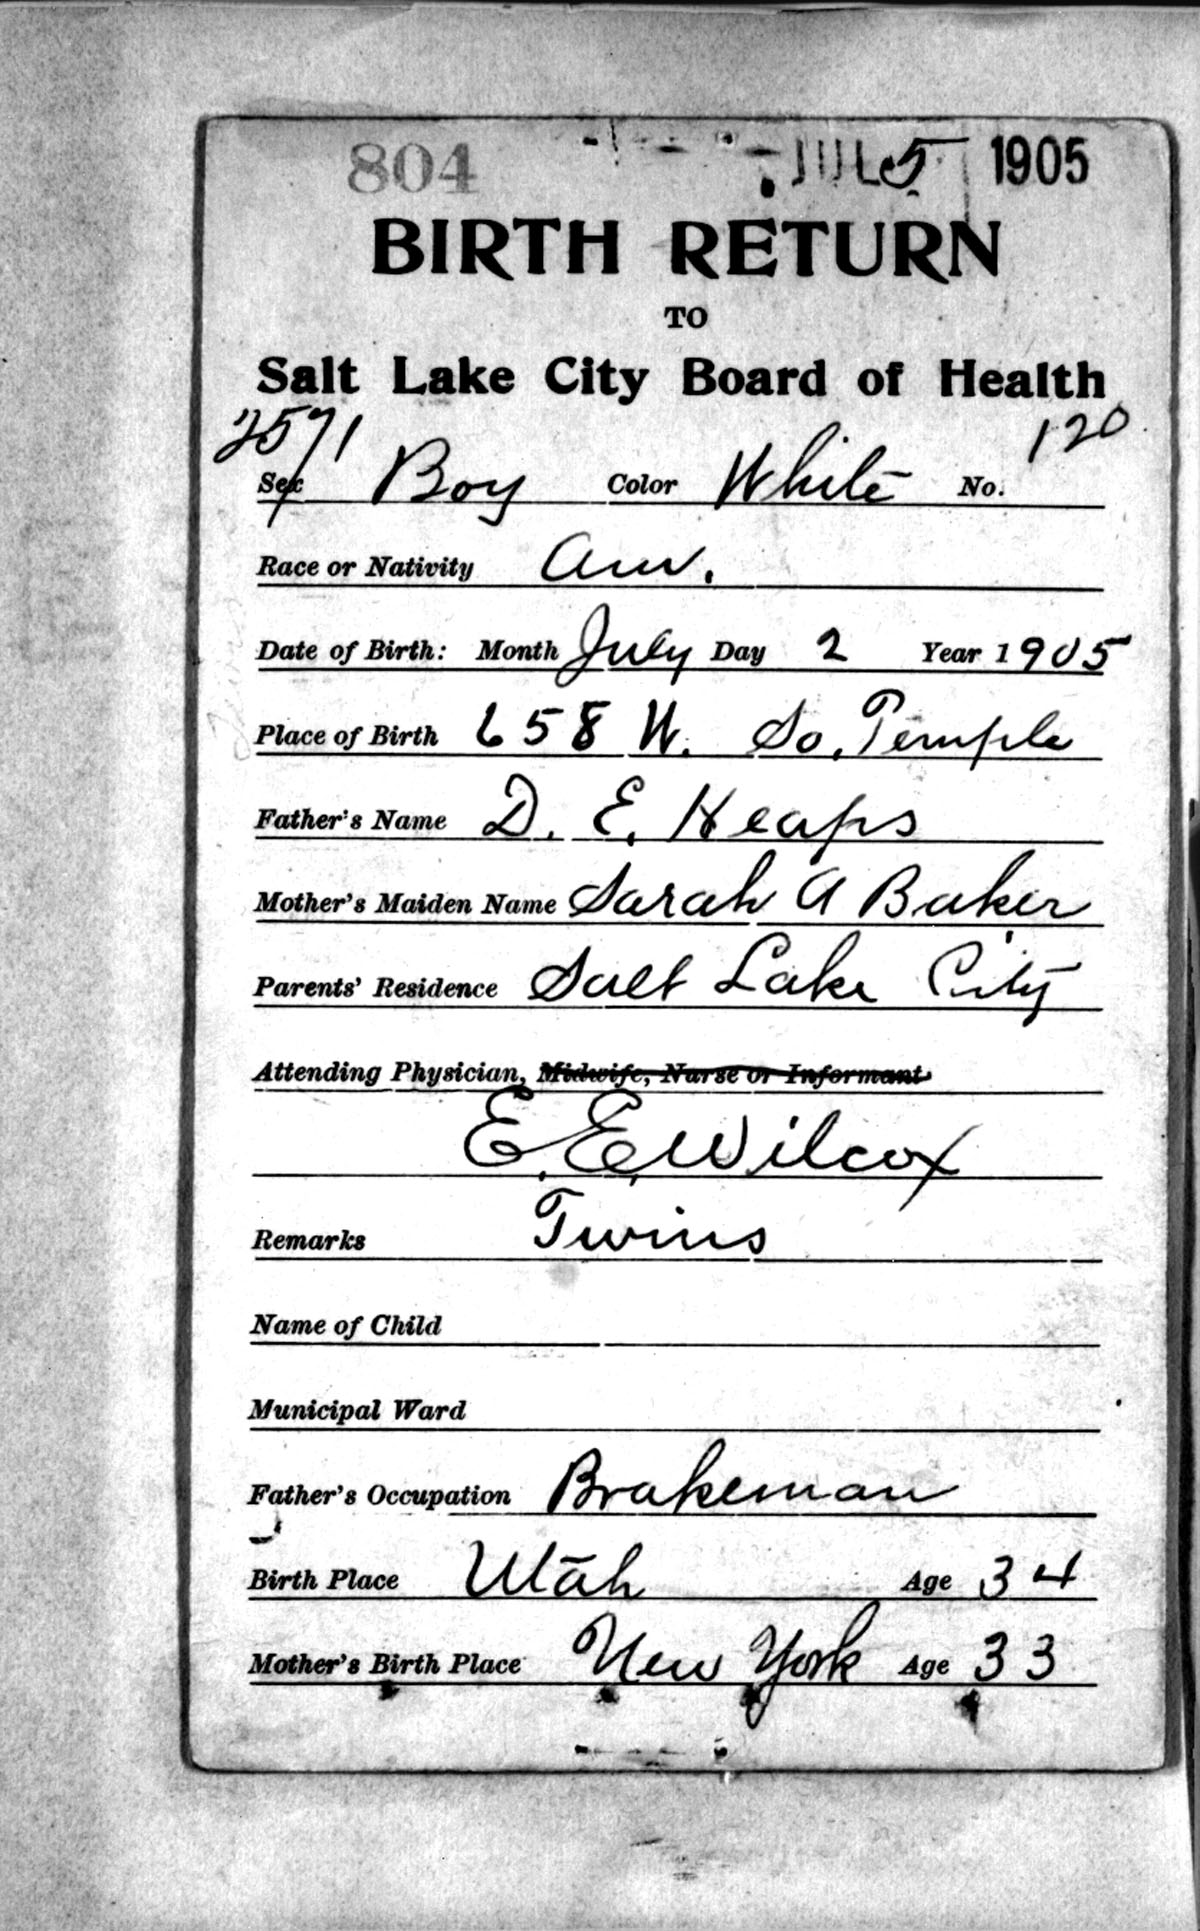 804 JUL 5 1905
BIRTH RETURN
TO
Salt Lake City Board of Health
2571 120
Sex Boy Color White No.
Race or Nativity Am.
Date of Birth: Month July Day 2 Year 1905
Place of Birth 658 W. So. Temple
Father's Name D. E. Heaps
Mother's Maiden Name Sarah A Baker
Parents' Residence Salt Lake City
Attending Physician, Midwife, Nurse or Informant
E. E. Wilcox
Remarks Twins
Name of Child
Municipal Ward
Father's Occupation Brakeman
Birth Place Utah Age 34
Mother's Birth Place New York Age 33